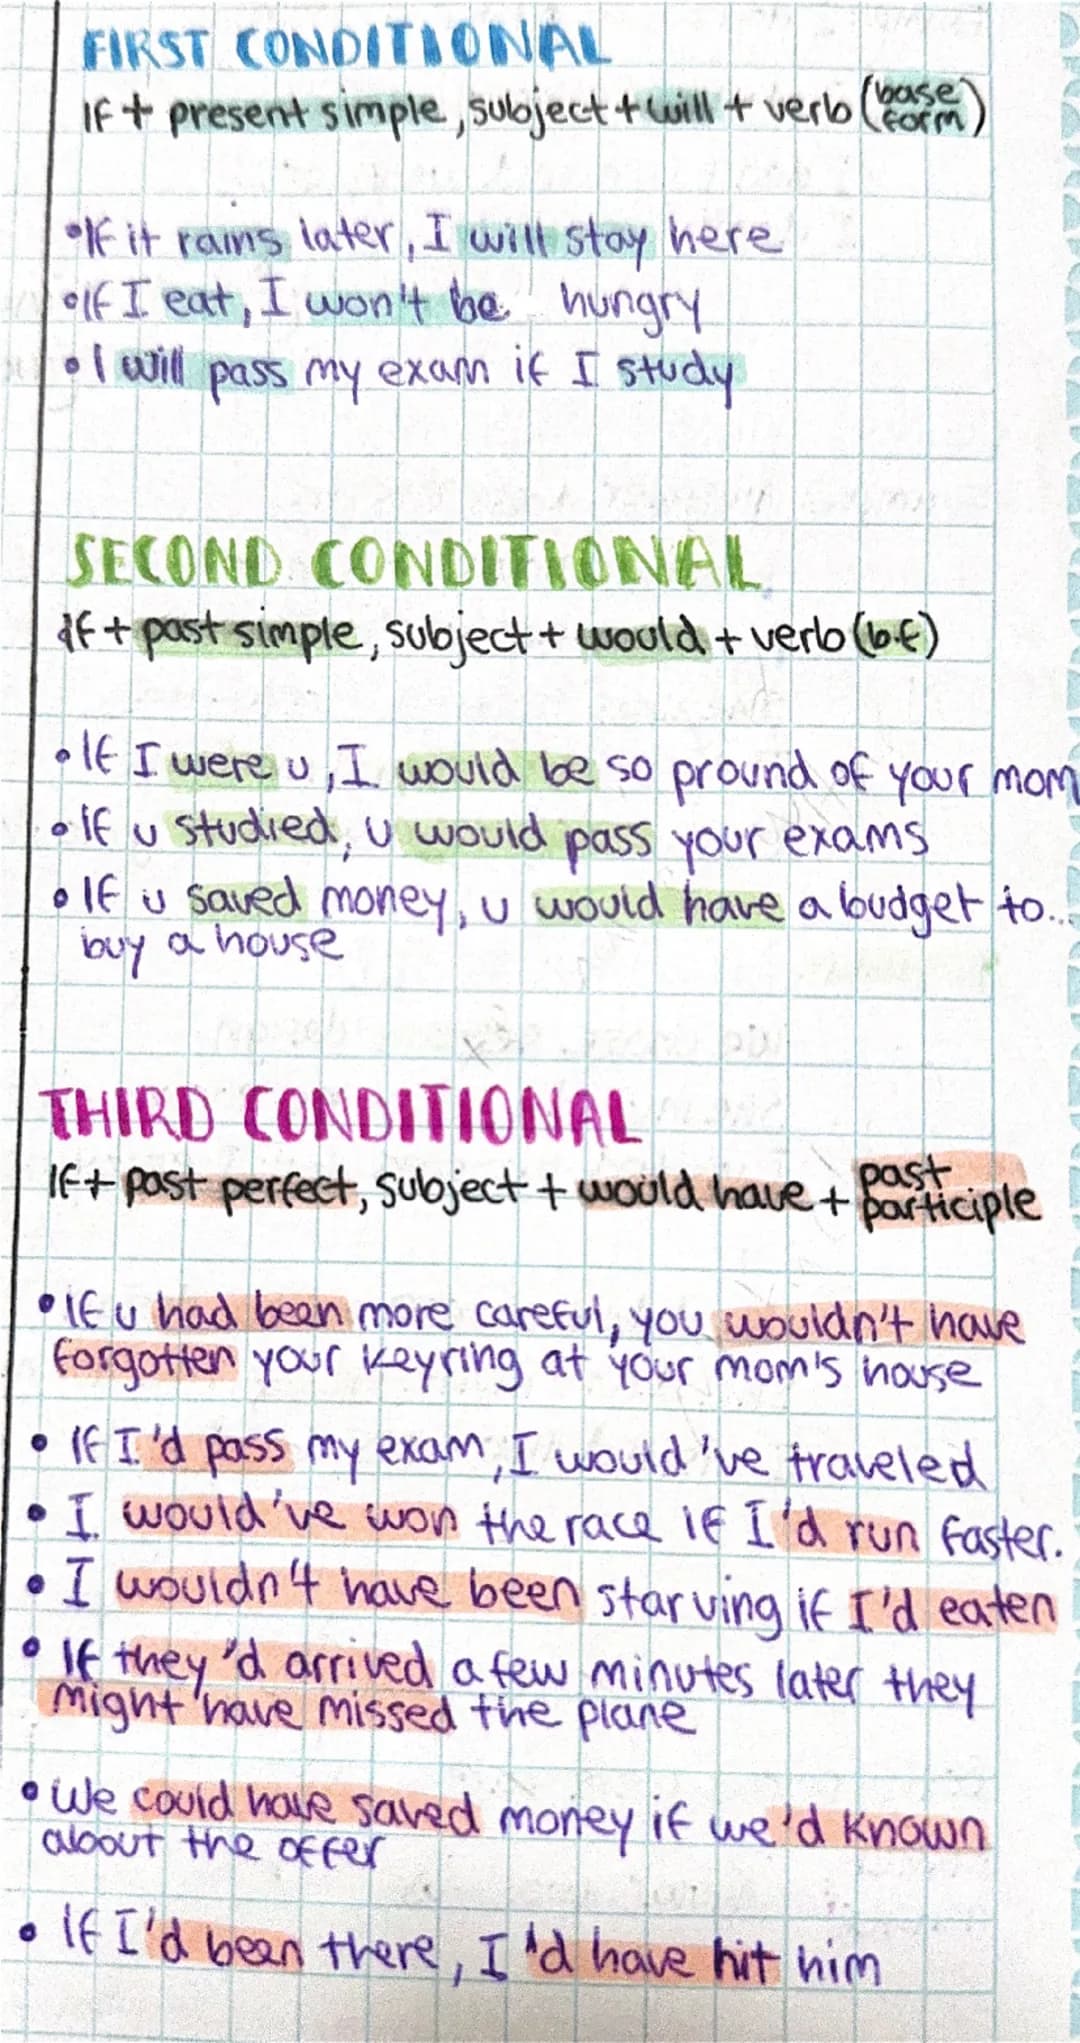 FIRST CONDITIONAL
If + present simple, subject + will + verb (base form)
•If it rains later, I will stay here
•If I eat, I won't be hungry
•I will pass my exam if I study
SECOND CONDITIONAL
If + past simple, subject + would + verb (b.f)
•If I were u, I would be so pround of your mom
•If u studied, u would pass your exams
•If u saved money, u would have a budget to...
buy a house
THIRD CONDITIONAL
If + past perfect, subject + would have + past participle
•If u had been more careful, you wouldn't have
forgotten your keyring at your mom's house
• If I'd pass my exam, I would've traveled
• I would've won the race if I'd run faster.
• I wouldn't have been starving if I'd eaten
• If they'd arrived a few minutes later they
might have missed the plane
• We could have saved money if we'd known
about the offer
• If I'd been there, I'd have hit him